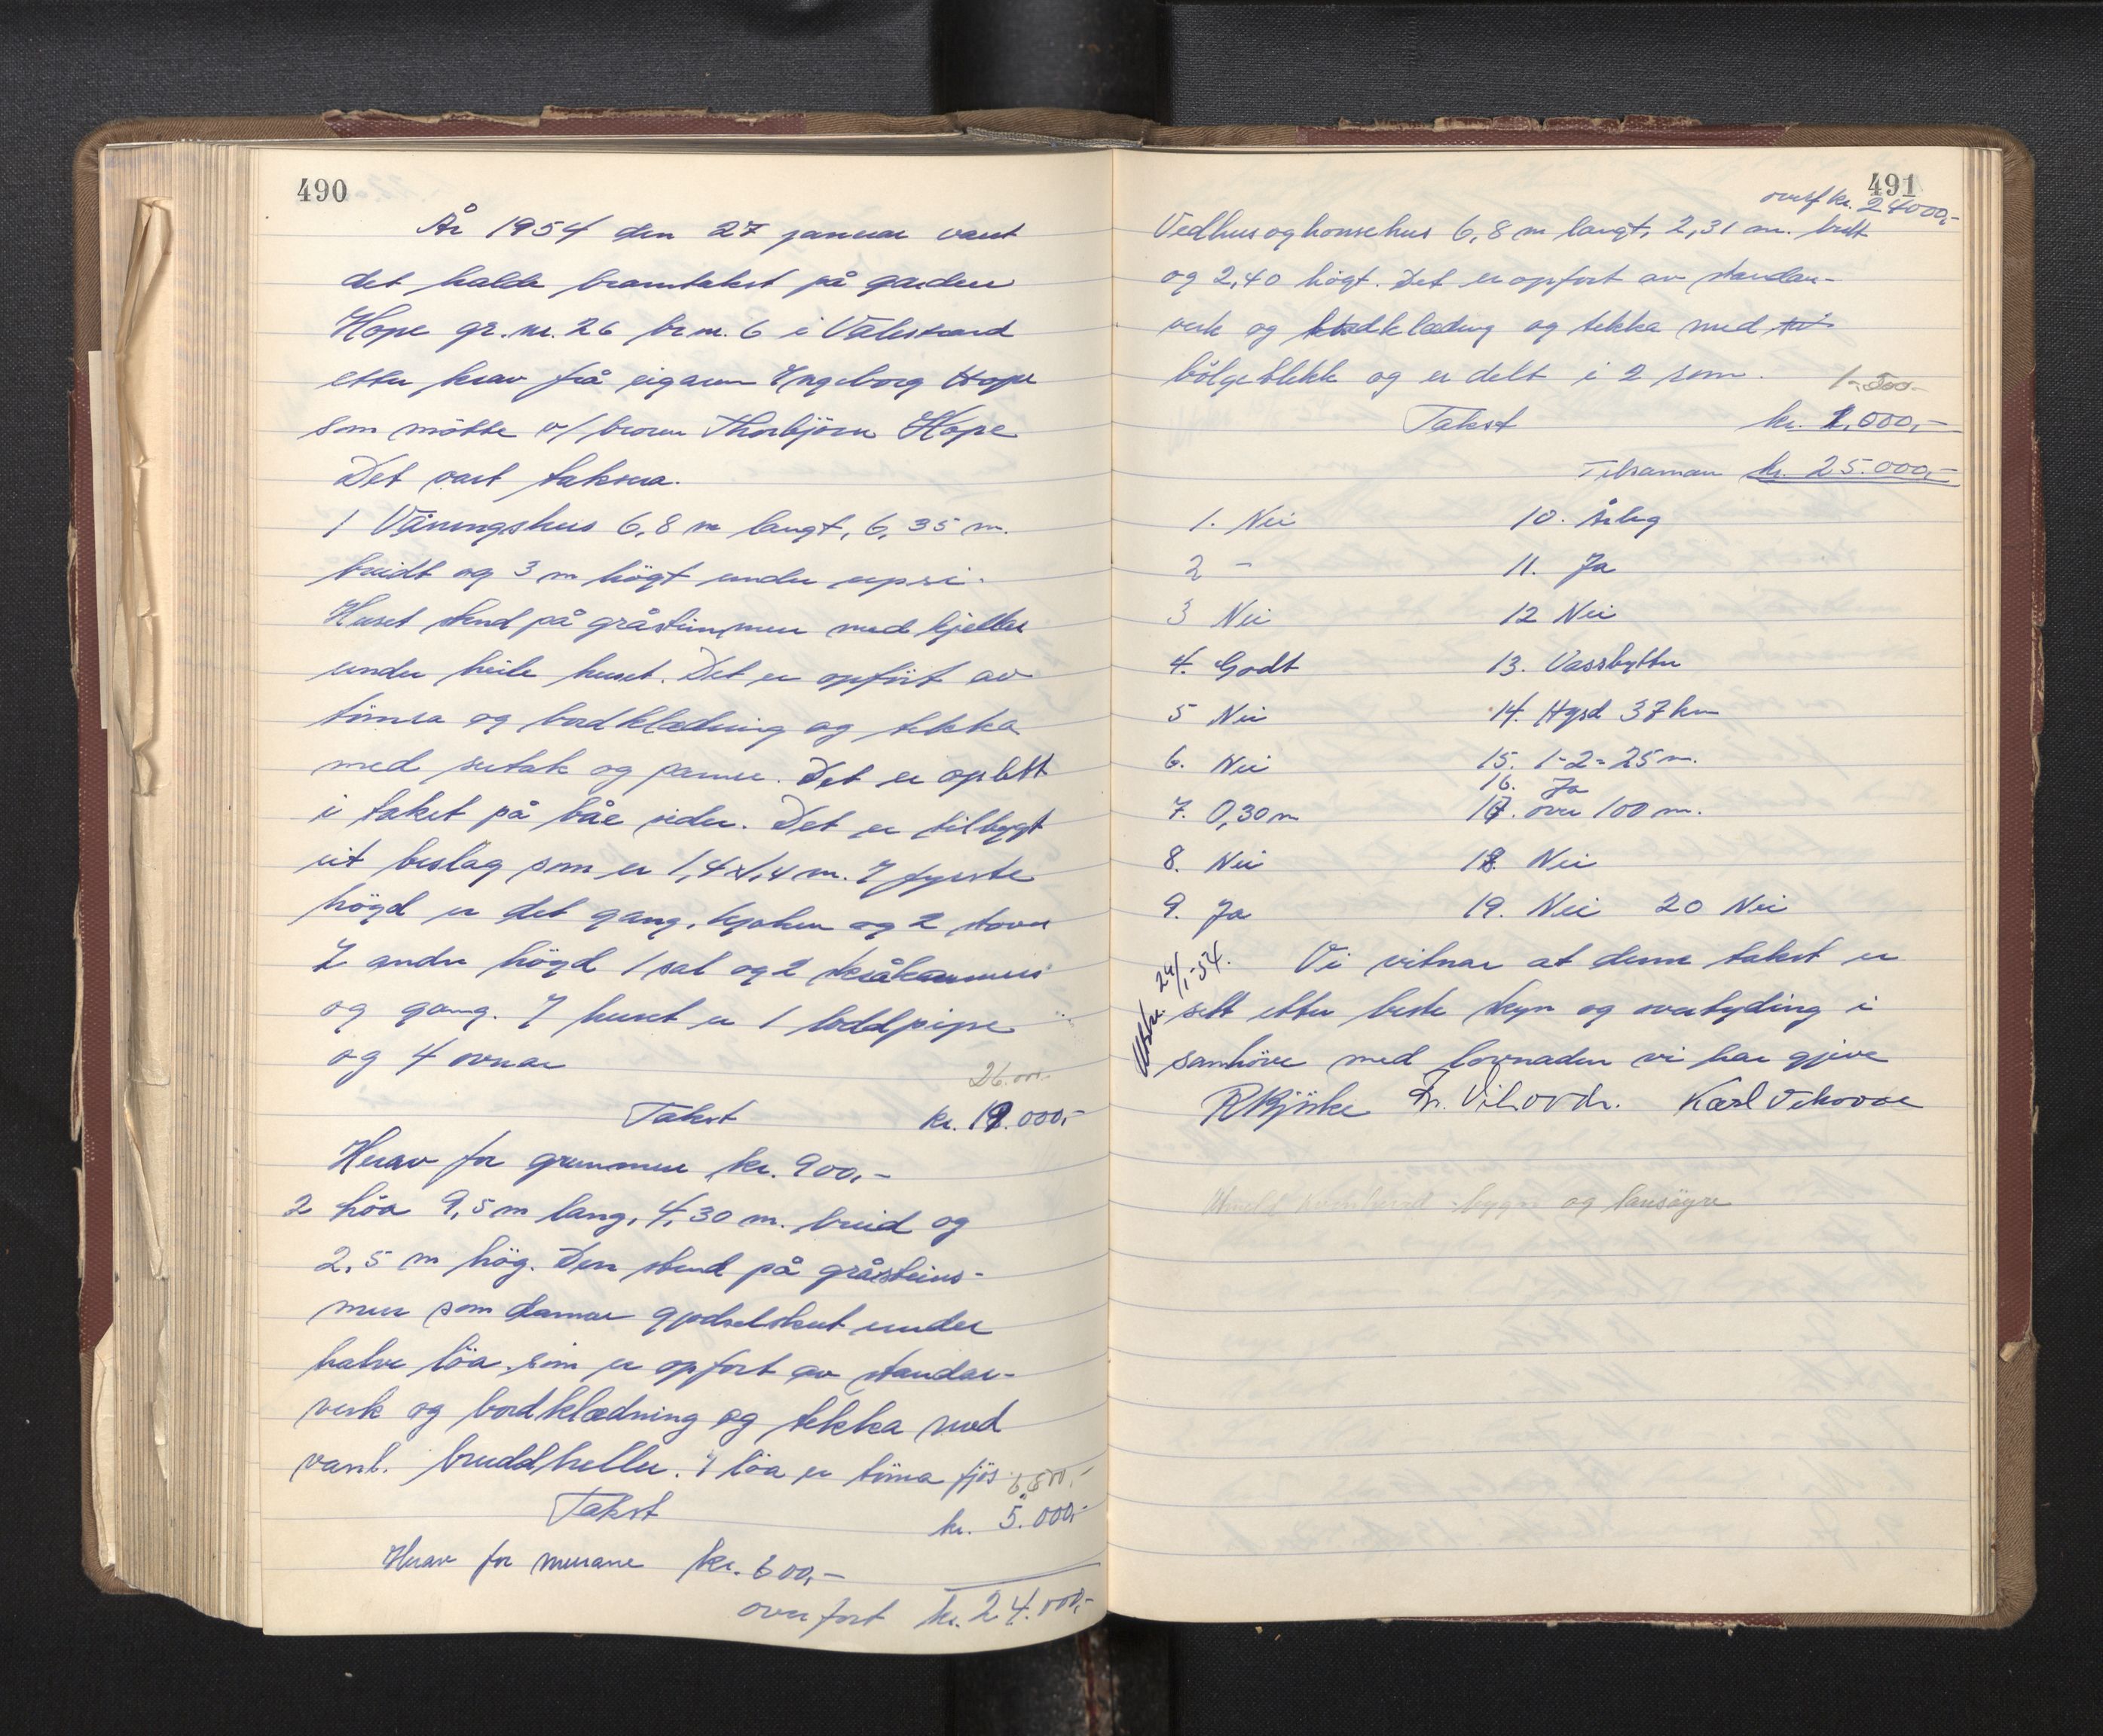 490
År 1954 den 27 januar vart
det halde branntakst på garden
Hope gr.nr. 26 br.nr. 6 i Valestrand
etter krav frå eigaren Ingeborg Hope
som møtte v/ broren Thorbjörn Hope
Det vart taksera.
1 Våningshus 6,8 m langt, 6,35 m.
breidt og 3 m högt under upsi.
Huset stend på gråsteinmur med kjeller
under heile huset. Det er opfört av
tömra og bordklædning og tekka
med sutak og panner. Det er oplett
i taket på båe sider. Det er tilbygt
eit beslag som er 1,4x1,4 m. I fyrste
högd er det gang, kjöken og 2 stover
I andre högd 1 sal og 2 skråkammers
og gang. I huset er 1 loddpipe
og 4 ovnar
26.000.-
Takst kr. 19.000,-
Herav for grunnmur kr. 900,-
2 löa 9,5 m lang, 4,30 m. breid og
2,5 m hög. Den stend på gråsteins-
mur som danner gjødselskut under
halve löa, som er opfört av standar-
verk og bordklædning og tekka med
vanl. bruddheller. I löa er tömra fjös
6,500,-
Takst kr. 5.000,-
Herav for murane kr. 600,-
overfört kr. 24.000,-
491
overf kr. 24000,-
Vedhus og hönsehus 6,8 m langt, 2,31 m. breit
og 2,40 högt. Det er opfört av standar-
verk og bordklædning og tekka med
bölgeblekk og er delt i 2 rom.
1.500.-
Takst kr. 1.000,-
Tilsaman kr. 25.000,-
1. Nei 10. Årleg
2 - 11. Ja
3 Nei 12 Nei
4. Godt 13. Vassbytter
5 Nei 14. Hgsd 37 km
6. Nei 15. 1-2=25 m.
16. Ja
7. 0,30 m 17. over 100 m.
8. Nei 18. Nei
9. Ja 19. Nei 20 Nei
Utskr. 29/1-54.
Vi vitnar at denne takst er
sett etter beste skyn og overtyding i
samhöve med lovnaden vi har gjeve
R Bjørke Karl Tekovoe
og lausöyre